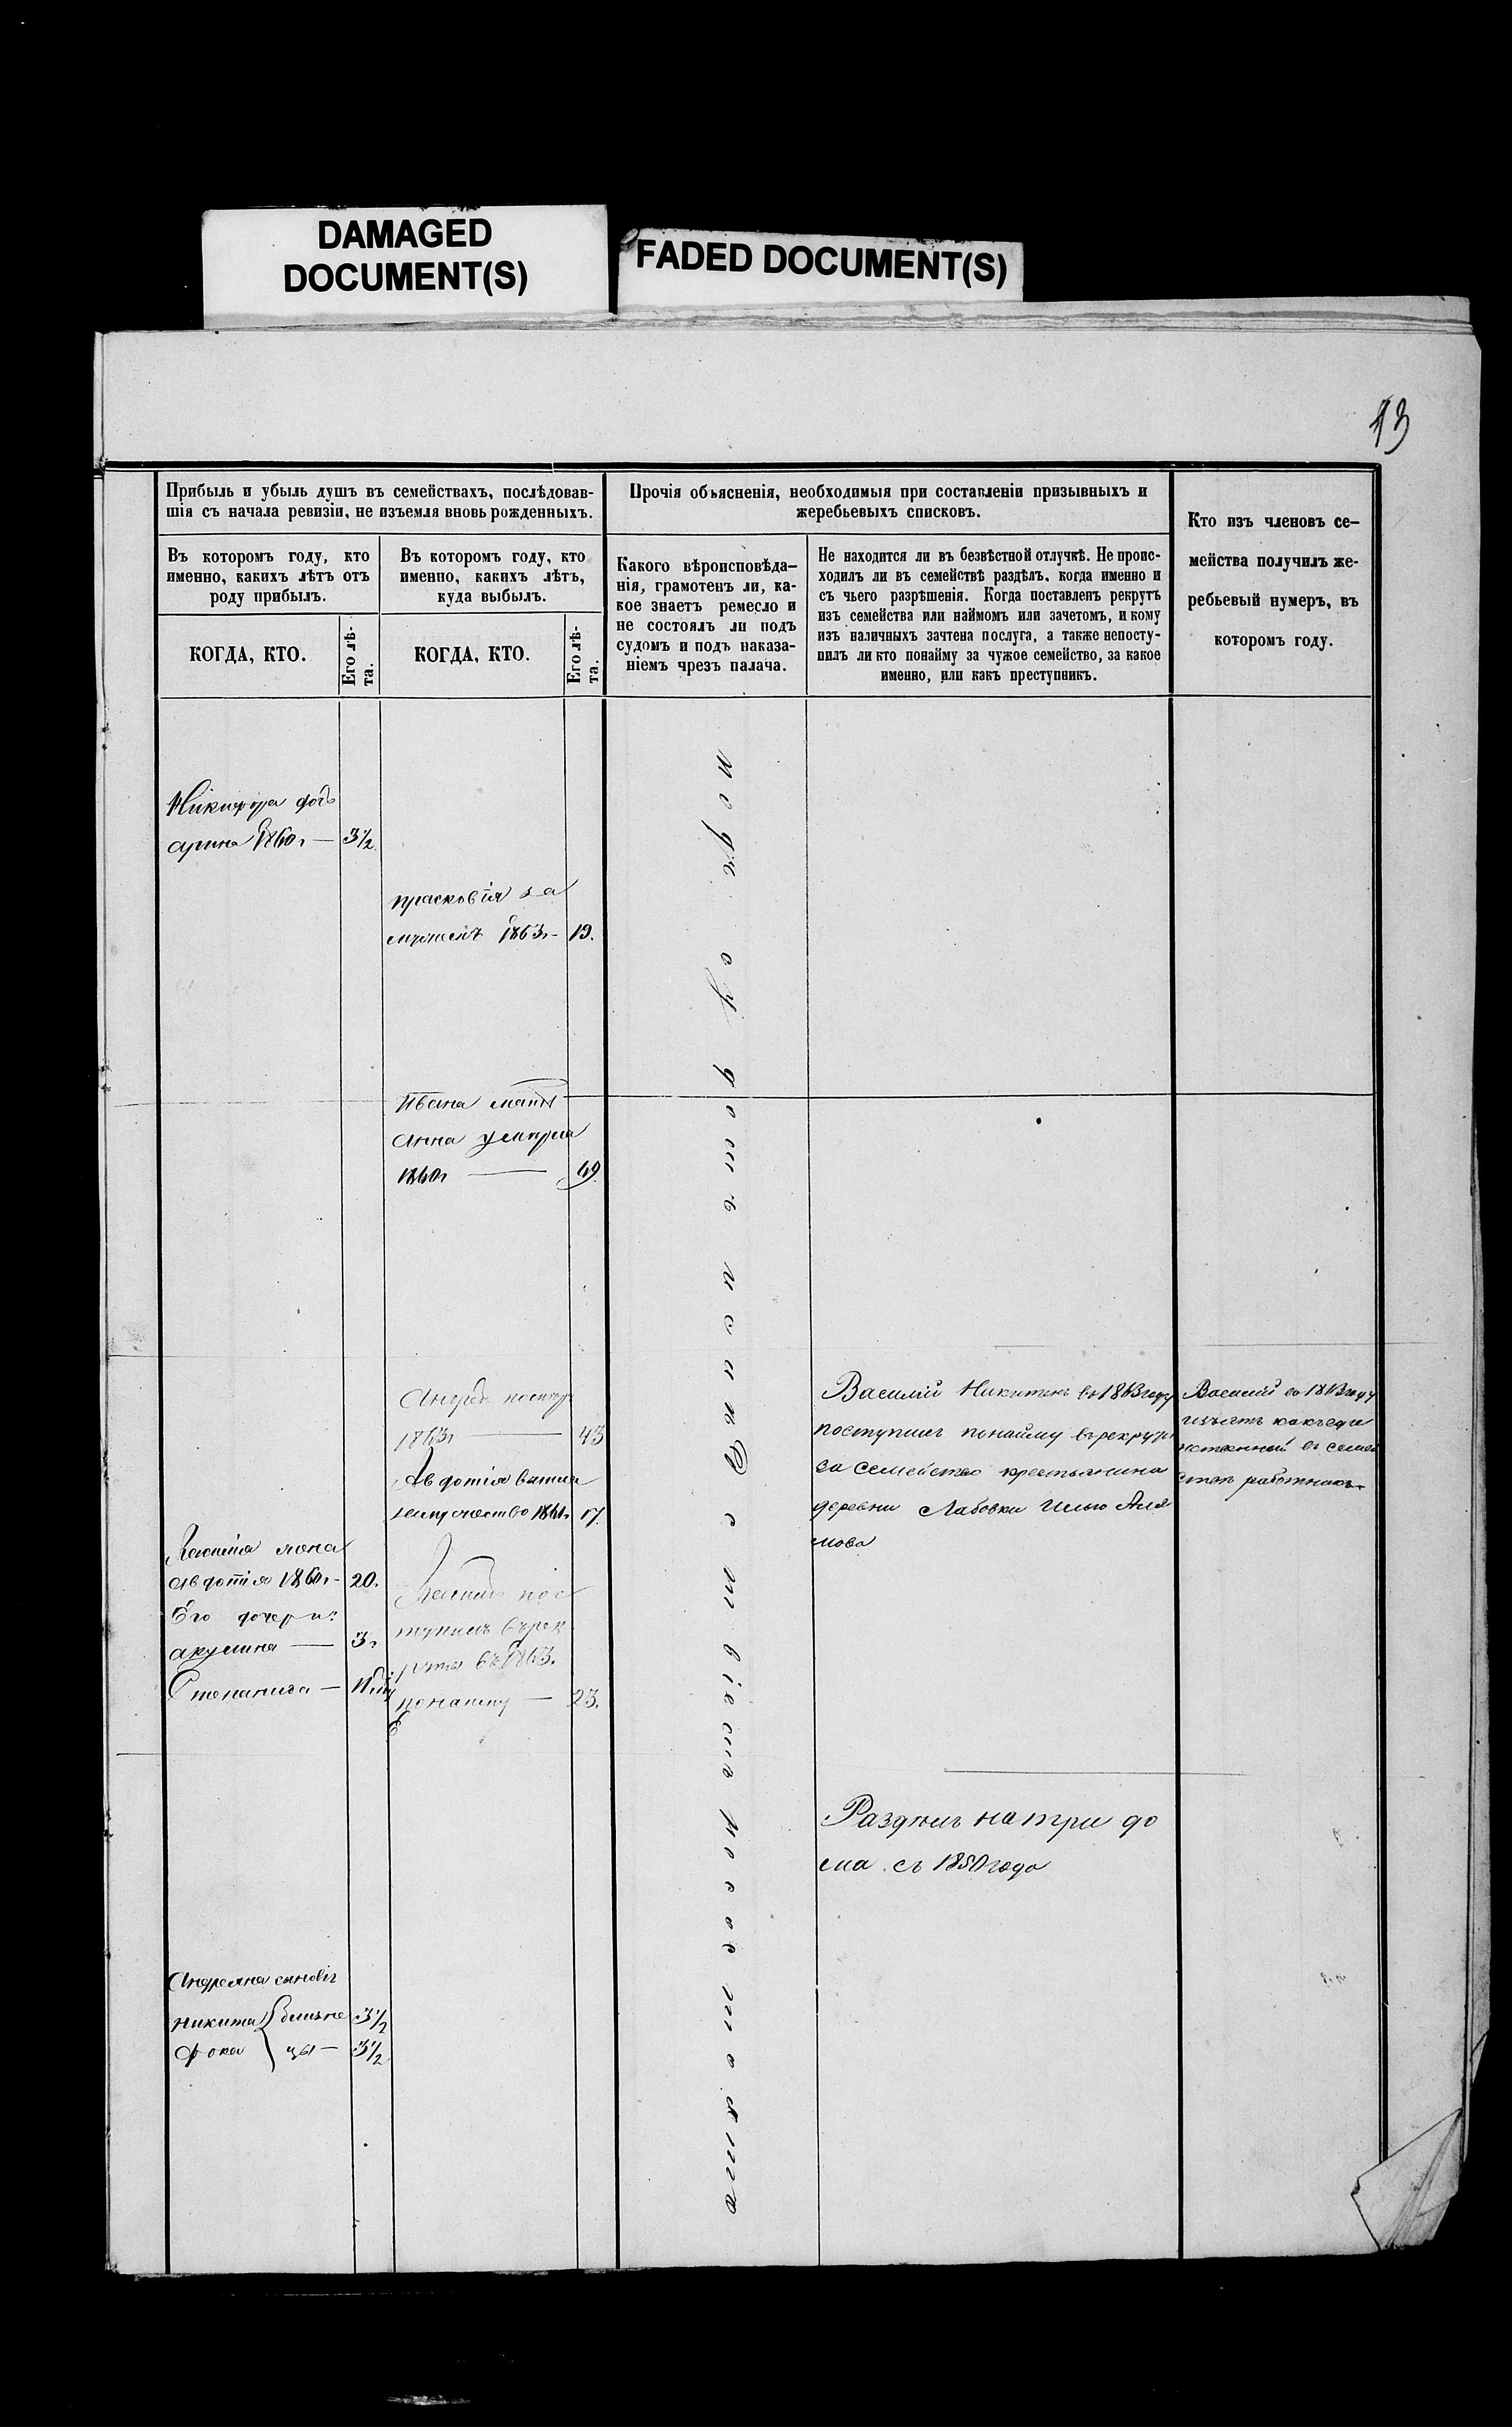 DAMAGED
DOCUMENT(S)
FADED DOCUMENT(S)
13
Прибыль и убыль душъ въ семействахъ, послѣдовав-
шія съ начала ревизіи, не изъемля вновь рожденныхъ.
Прочія объясненія, необходимыя при составленіи призывныхъ и
жеребьевыхъ списковъ.
Кто изъ членовъ се-
мейства получилъ же-
ребьевый нумеръ, въ
которомъ году.
Въ которомъ году, кто
именно, какихъ лѣтъ отъ
роду прибылъ.
Въ которомъ году, кто
именно, какихъ лѣтъ,
куда выбылъ.
Какого вѣроисповѣда-
нія, грамотенъ ли, ка-
кое знаетъ ремесло и
не состоялъ ли подъ
судомъ и подъ наказа-
ніемъ чрезъ палача.
Не находится ли въ безвѣстной отлучкѣ. Не проис-
ходилъ ли въ семействѣ раздѣлъ, когда именно и
съ чьего разрѣшенія. Когда поставленъ рекрутъ
изъ семейства или наймомъ или зачетомъ, и кому
изъ наличныхъ зачтена послуга, а также непосту-
пилъ ли кто понайму за чужое семейство, за какое
именно, или какъ преступникъ.
КОГДА, КТО.
Его лѣ-
та.
КОГДА, КТО.
Его лѣ-
та.
Никифора дочь
арина 1860г — 3½
прасковія за
1863г - 19.
Ивана мать
Анна умерла
1860г — 49.
Андрей
1863г — 43
Авдотія вышла
замужество 1861г 17.
жена
авдотія 1860г - 20.
Его дочери:
акулина — 3г
Степанида —
пос
тупилъ върек
руты въ 1863.
понайму — 23.
подъ судомъ
Василій Никитинъ въ 1863 году
поступилъ понайму върекруты
за семейство крестьянина
деревни Лабовки
Василій въ 1863 году
изъятъ какъ еди
нственный въ семей
работникъ
Раздѣлъ на три до
ма съ 1850 года
Андреяна сыновья
никита близне 3½
фока цы — 3½